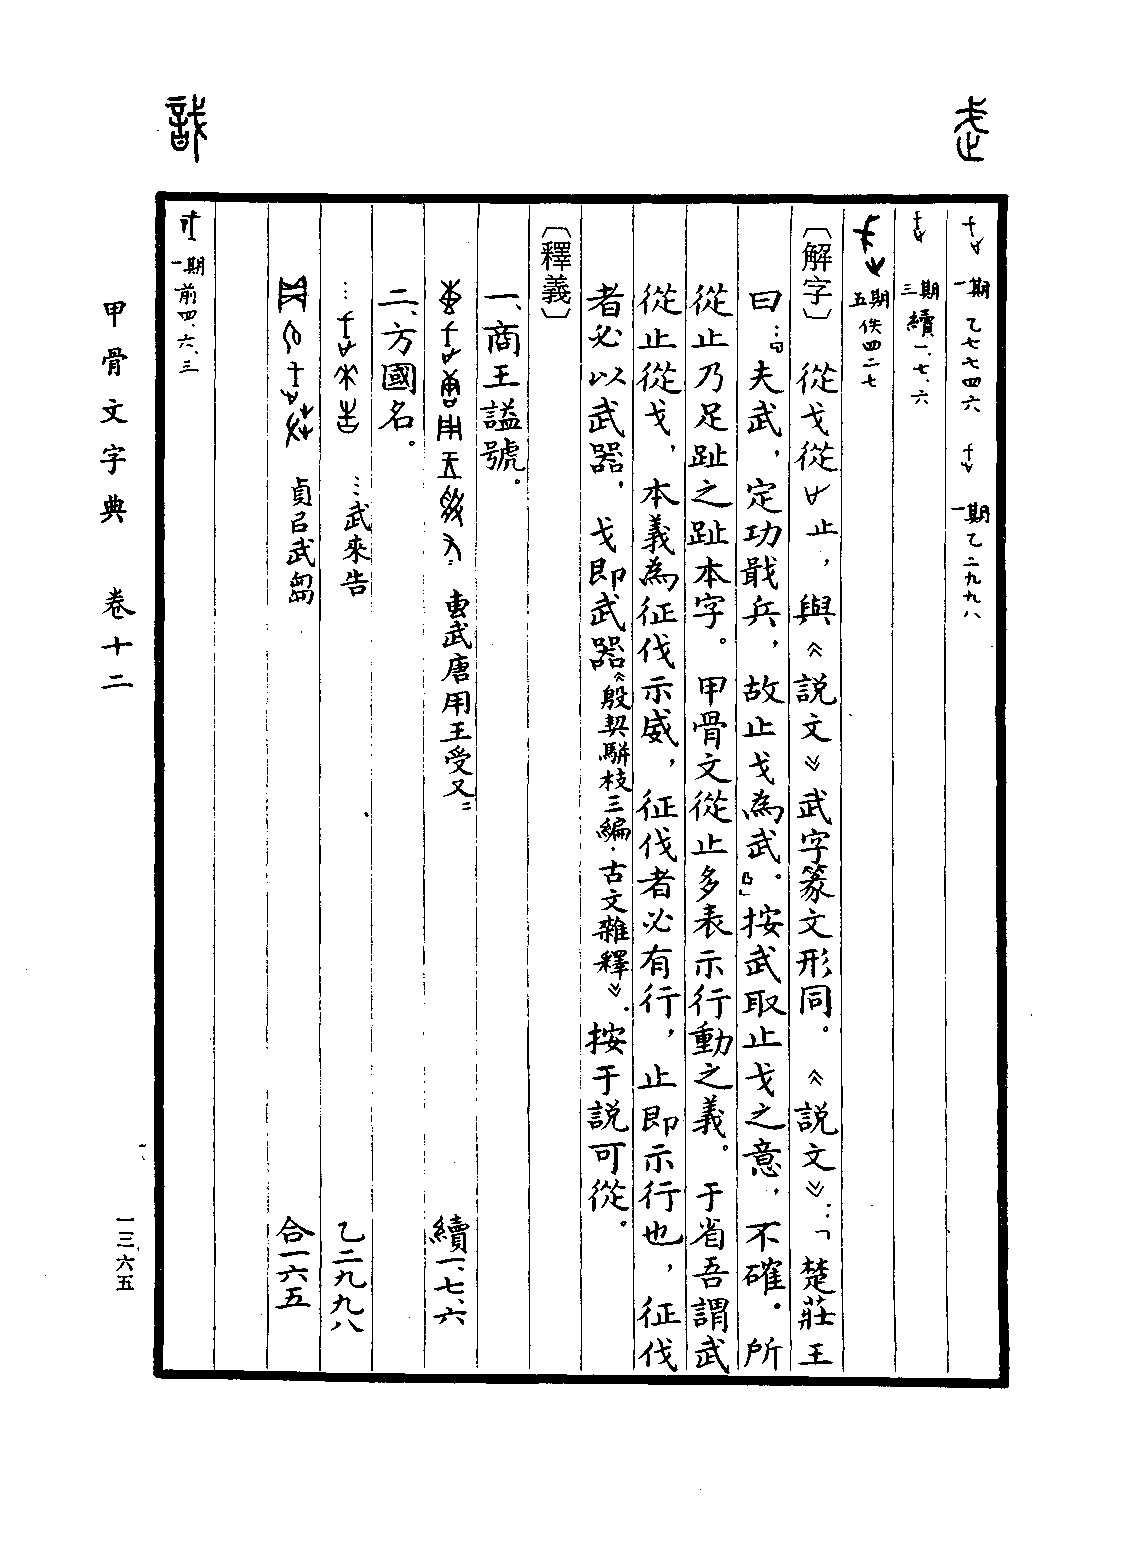 武
一期 乙七七四六 一期 乙二九九八
三期 續一、七、六
五期 佚四二七
〔解字〕 從戈從止，與《說文》武字篆文形同。《說文》：「楚莊王
曰：『夫武，定功戢兵，故止戈為武。』」按武取止戈之意，不確。所
從止乃足趾之趾本字。甲骨文從止多表示行動之義。于省吾謂武
從止從戈，本義為征伐示威，征伐者必有行，止即示行也，征伐
者必以武器，戈即武器《殷契駢枝三編·古文雜釋》。按于說可從。
〔釋義〕
一、商王謚號。
叀武唐用王受又＝ 續一、七、六
二、方國名。
…武來告 乙二九九八
貞呂武芻 合一六五
一期 前四、六、三
甲骨文字典 卷十二
一三六五